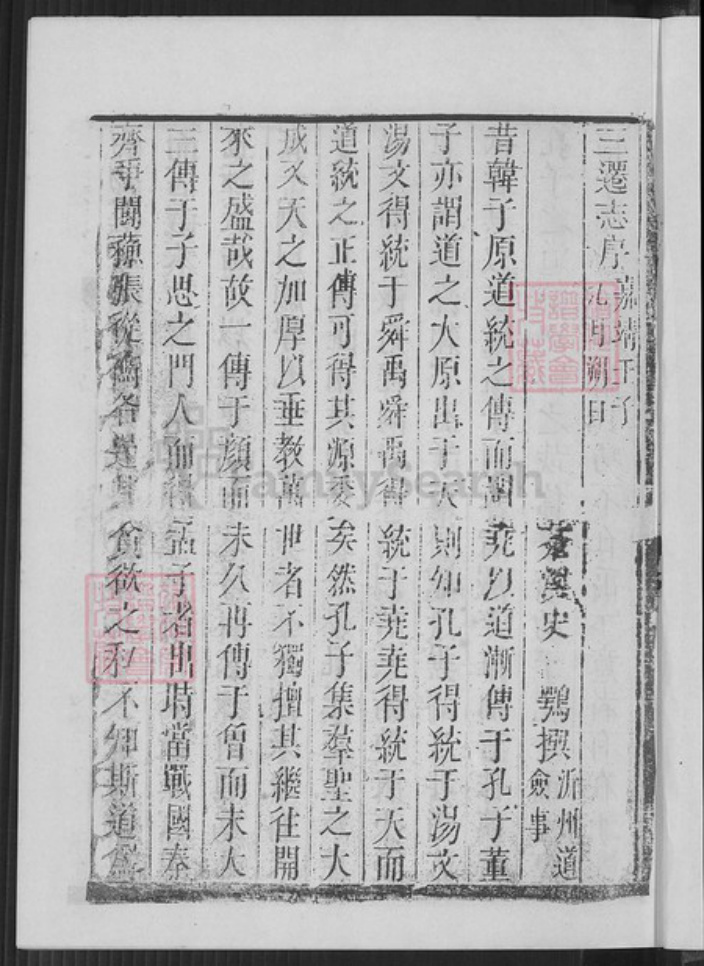 三遷志序嘉靖壬子
九月朔日
史鶚撰沂州道
僉事
昔韓子原道統之傳而謂堯以道漸傳于孔子董
子亦謂道之大原出于天則知孔子得統于湯文
湯文得統于舜禹舜禹得統于堯堯得統于天而
道統之正傳可得其源委矣然孔子集羣聖之大
成又天之加厚以垂教萬世者不獨擅其繼往開
來之盛哉故一傳于顏而未久再傳于曾而未大
三傳于子思之門人而得孟子者出時當戰國秦
齊爭鬪蘇張從衡各逞其貪欲之私不知斯道爲
FamilySearch